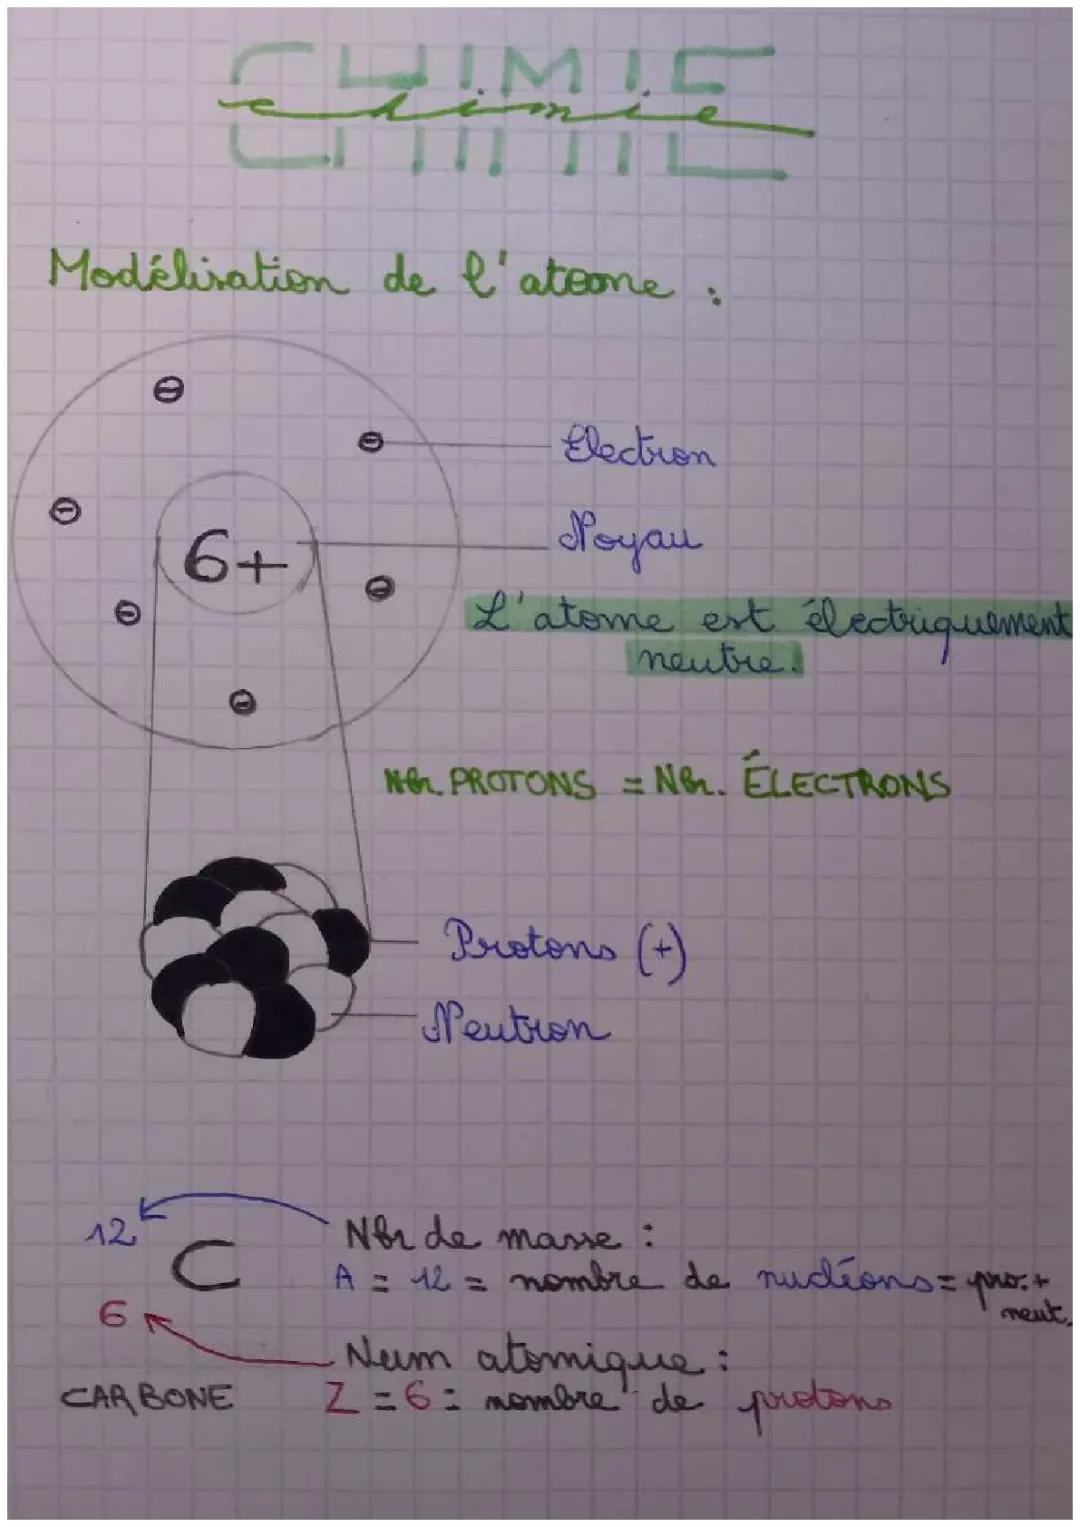 CHIMIE
chimie
Modélisation de l'atome :
⊖
⊖
Electron
⊖
6+
Noyau
⊖
⊖
L'atome est électriquement
neutre.
⊖
Nbr PROTONS = Nbr. ÉLECTRONS
Protons (+)
Neutron
12
C
Nbr de masse :
A = 12 = nombre de nucléons = pro. +
neut.
6
Num atomique :
CARBONE
Z = 6 = nombre de protons